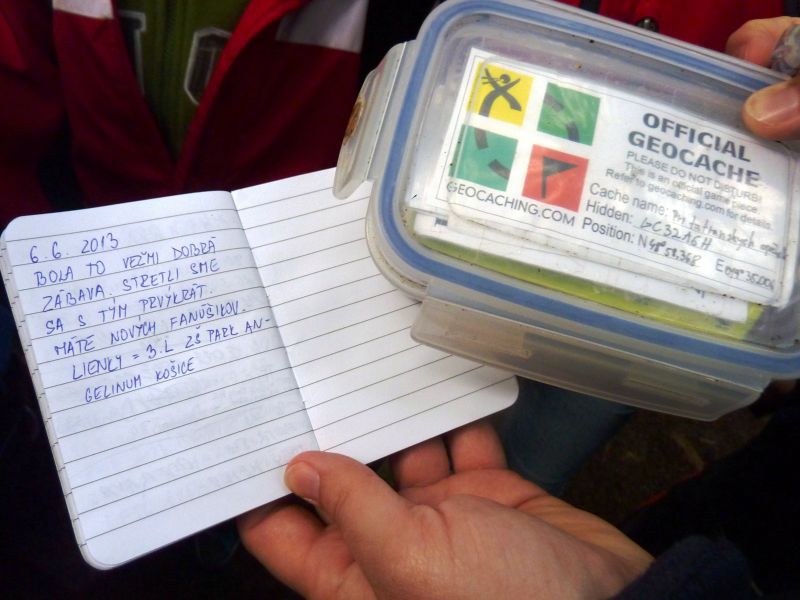 6.6.2013
BOLA TO VEĽMI DOBRÁ
ZÁBAVA. STRETLI SME
SA S TÝM PRVÝKRÁT.
MÁTE NOVÝCH FANÚŠIKOV.
LIENKY = 3.L ZŠ PARK AN-
GELINUM KOŠICE
OFFICIAL
GEOCACHE
PLEASE DO NOT DISTURB!
This is an official game piece.
Refer to geocaching.com for details.
GEOCACHING.COM
Cache name:
Hidden:
Position: N 48° 58,368 E